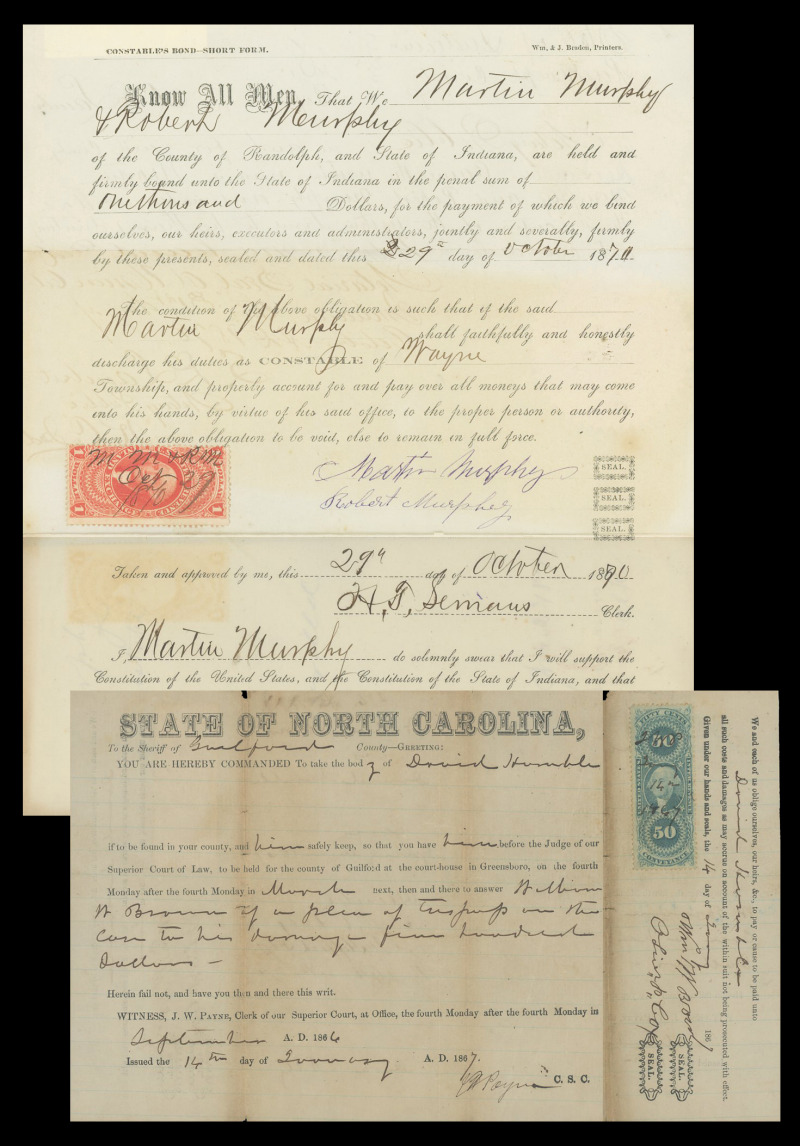 CONSTABLE'S BOND—SHORT FORM. Wm. & J. Braden, Printers.
Know All Men, That We Martin Murphy
& Robert Murphy
of the County of Randolph, and State of Indiana, are held and
firmly bound unto the State of Indiana in the penal sum of
One thousand Dollars, for the payment of which we bind
ourselves, our heirs, executors and administrators, jointly and severally, firmly
by these presents, sealed and dated this 29th day of October 1870.
The condition of the above obligation is such that if the said
Martin Murphy shall faithfully and honestly
discharge his duties as CONSTABLE of Wayne
Township, and properly account for and pay over all moneys that may come
into his hands, by virtue of his said office, to the proper person or authority,
then the above obligation to be void, else to remain in full force.
M M & R M
Oct 29
1870
1 1
Martin Murphy SEAL.
Robert Murphy SEAL.
SEAL.
Taken and approved by me, this 29th day of October 1870
Clerk.
I, Martin Murphy do solemnly swear that I will support the
Constitution of the United States, and the Constitution of the State of Indiana, and that
STATE OF NORTH CAROLINA,
To the Sheriff of Guilford County—GREETING:
YOU ARE HEREBY COMMANDED To take the body of David Humble
if to be found in your county, and him safely keep, so that you have him before the Judge of our
Superior Court of Law, to be held for the county of Guilford at the court-house in Greensboro, on the fourth
Monday after the fourth Monday in March next, then and there to answer William
W Brown of a plea of trespass on the
case to his damage five hundred
dollars —
Herein fail not, and have you then and there this writ.
WITNESS, J. W. PAYNE, Clerk of our Superior Court, at Office, the fourth Monday after the fourth Monday in
September A. D. 1866
Issued the 14th day of January A. D. 1867.
J W Payne C. S. C.
FIFTY CENTS
50
14
1867
50
CONVEYANCE
We and each of us oblige ourselves, our heirs, &c., to pay or cause to be paid unto
David Humble
all such costs and damages as may accrue on account of the within suit not being prosecuted with effect.
Given under our hands and seals, the 14 day of Jany 1867
SEAL.
SEAL.